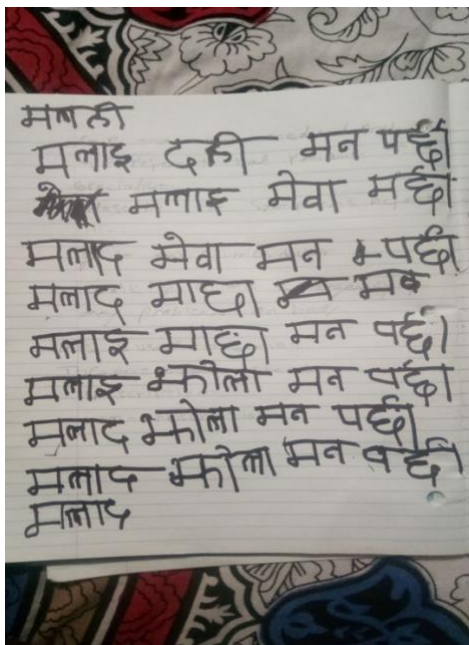 मलली
मलाइ दली मन पर्छ।
मलाइ मेवा मर्छ।
मलाद मेवा मन पर्छ।
मलाद माछा मव
मलाइ माछा मन पर्छ।
मलाइ झोला मन पर्छ।
मलाद झोला मन पर्छ।
मलाद झोला मन पर्छ
मलाद